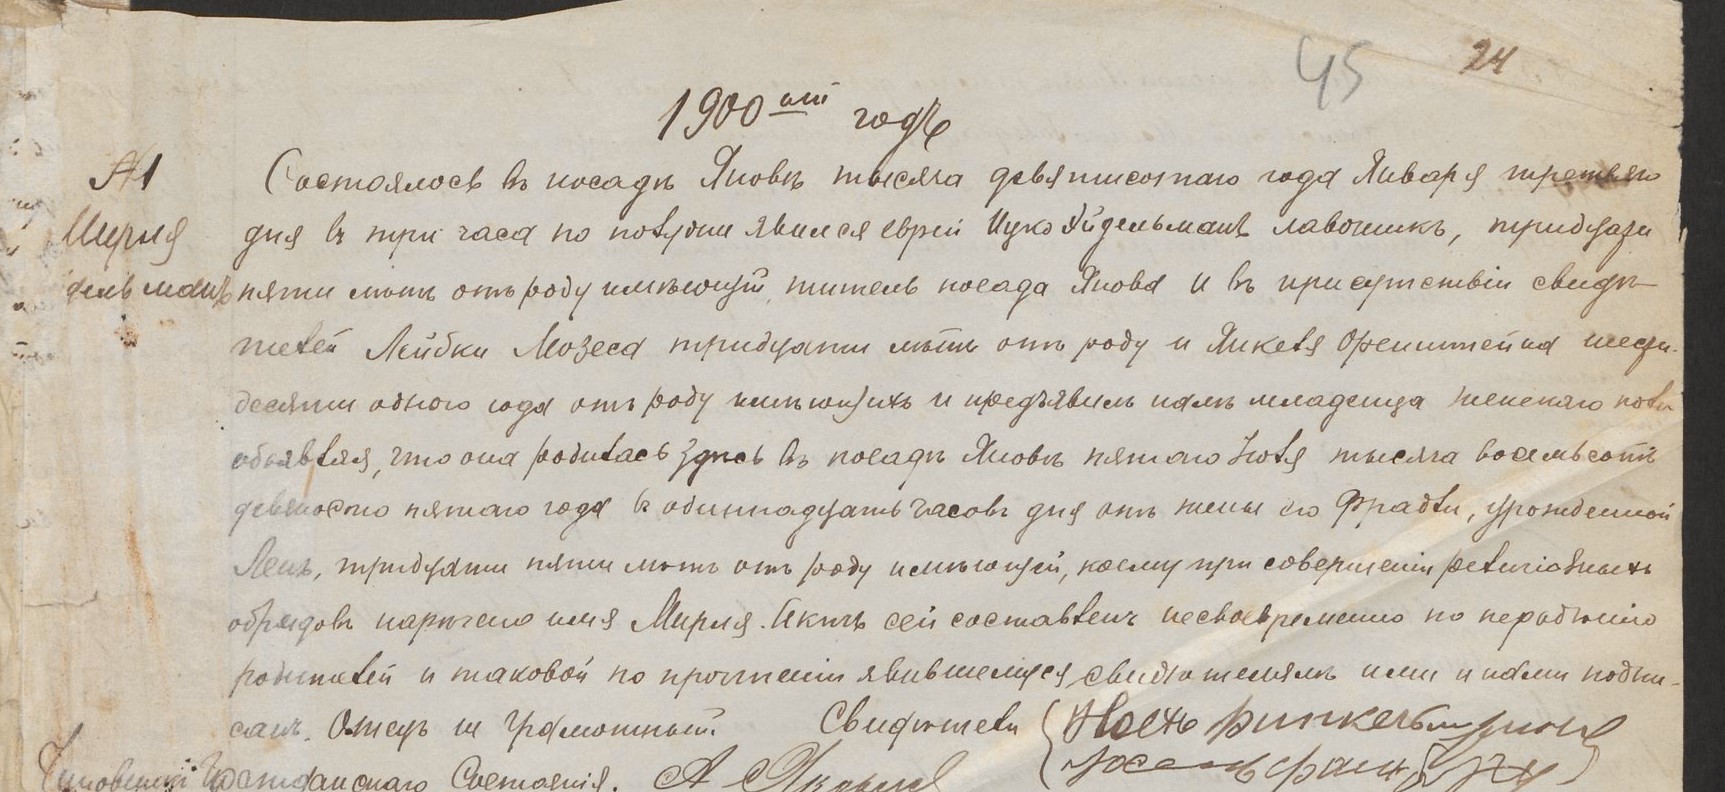 45 24
1900ый годъ
№1 Состоялось въ посадѣ Яновѣ тысяча девятисотаго года Января третьяго
Мирля дня въ три часа по полудни явился еврей Ицко Уйдельманъ лавочникъ, тридцати
дельманъ пяти лѣтъ отъ роду имѣющій, житель посада Янова и въ присутствіи свидѣ-
телей Лейбки Мозеса тридцати лѣтъ отъ роду и Янкеля Оренштейна шести-
десяти одного года отъ роду имѣющихъ и предъявилъ намъ младенца женскаго пола
объявляя, что она родилась здѣсь въ посадѣ Яновѣ пятаго Іюля тысяча восемьсотъ
девяносто пятаго года въ одиннадцать часовъ дня отъ жены его Фрадли, урожденной
Ленъ, тридцати пяти лѣтъ отъ роду имѣющей, коему при совершеніи религіозныхъ
обрядовъ наречено имя Мирля. Актъ сей составленъ несвоевременно по нерадѣнію
родителей и таковой по прочтеніи явившемуся, свидѣтелямъ ими и нами подпи-
санъ. Отецъ не грамотный. Свидѣтели
Гражданскаго Состоянія.